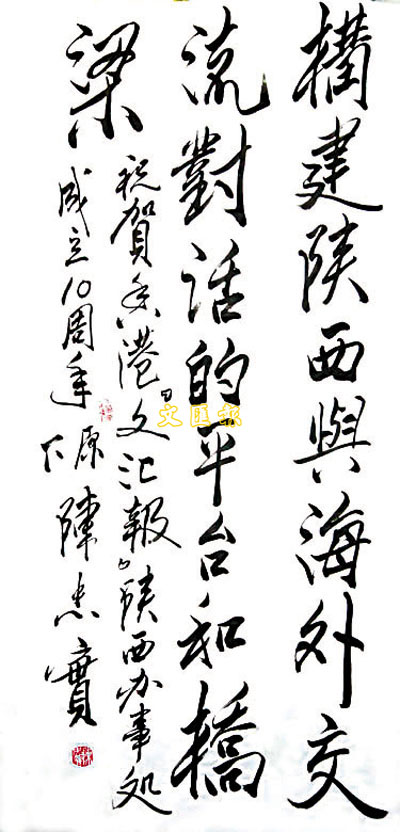 構建陕西與海外交
流對话的平台和橋
梁
祝賀香港《文汇報》陕西办事处
成立10周年
原下 陳忠實
文匯報